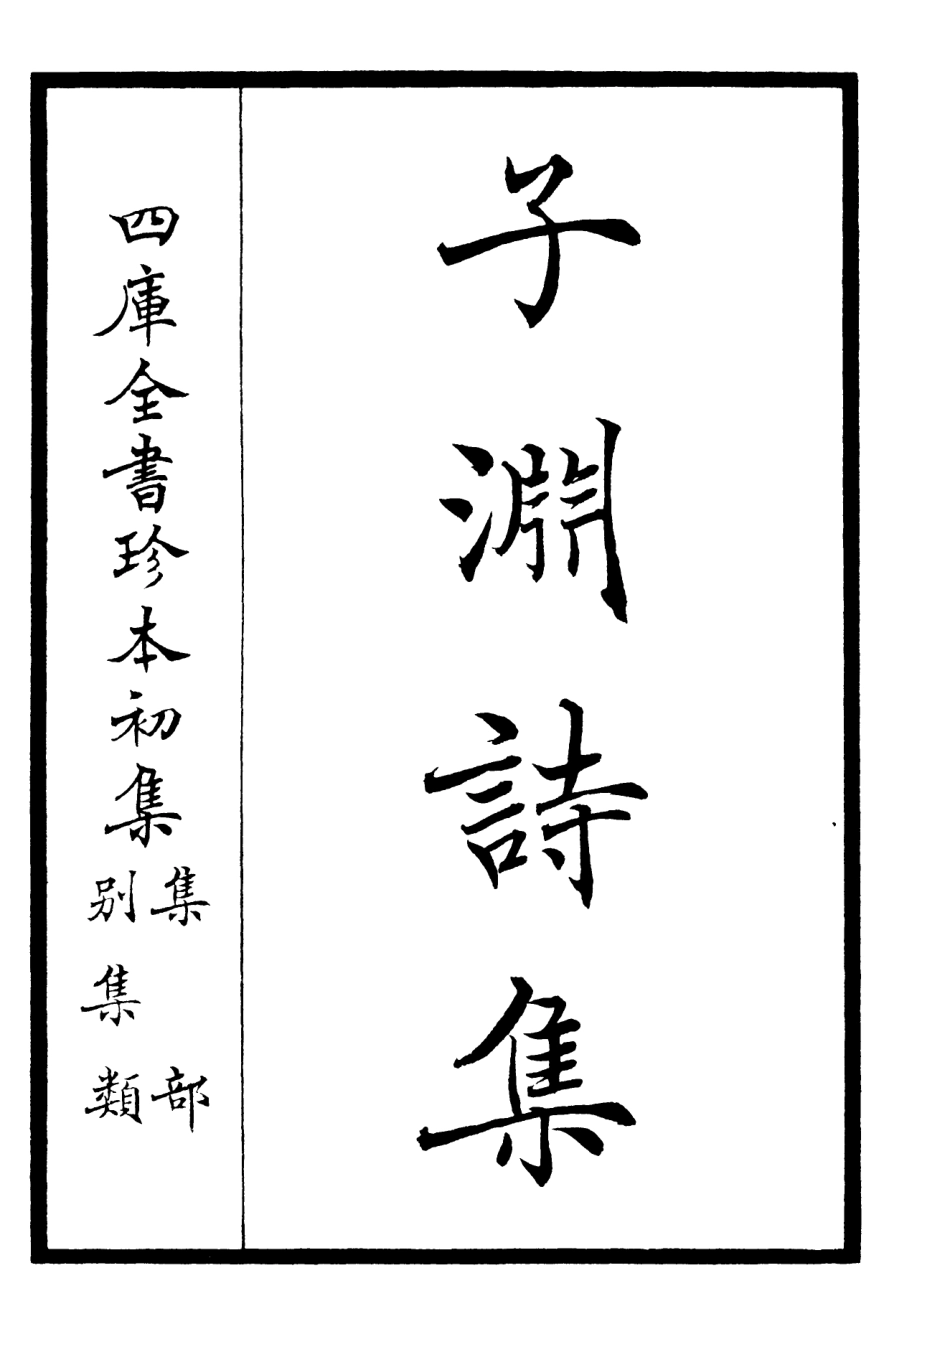 子淵詩集
四庫全書珍本初集
集部
別集類